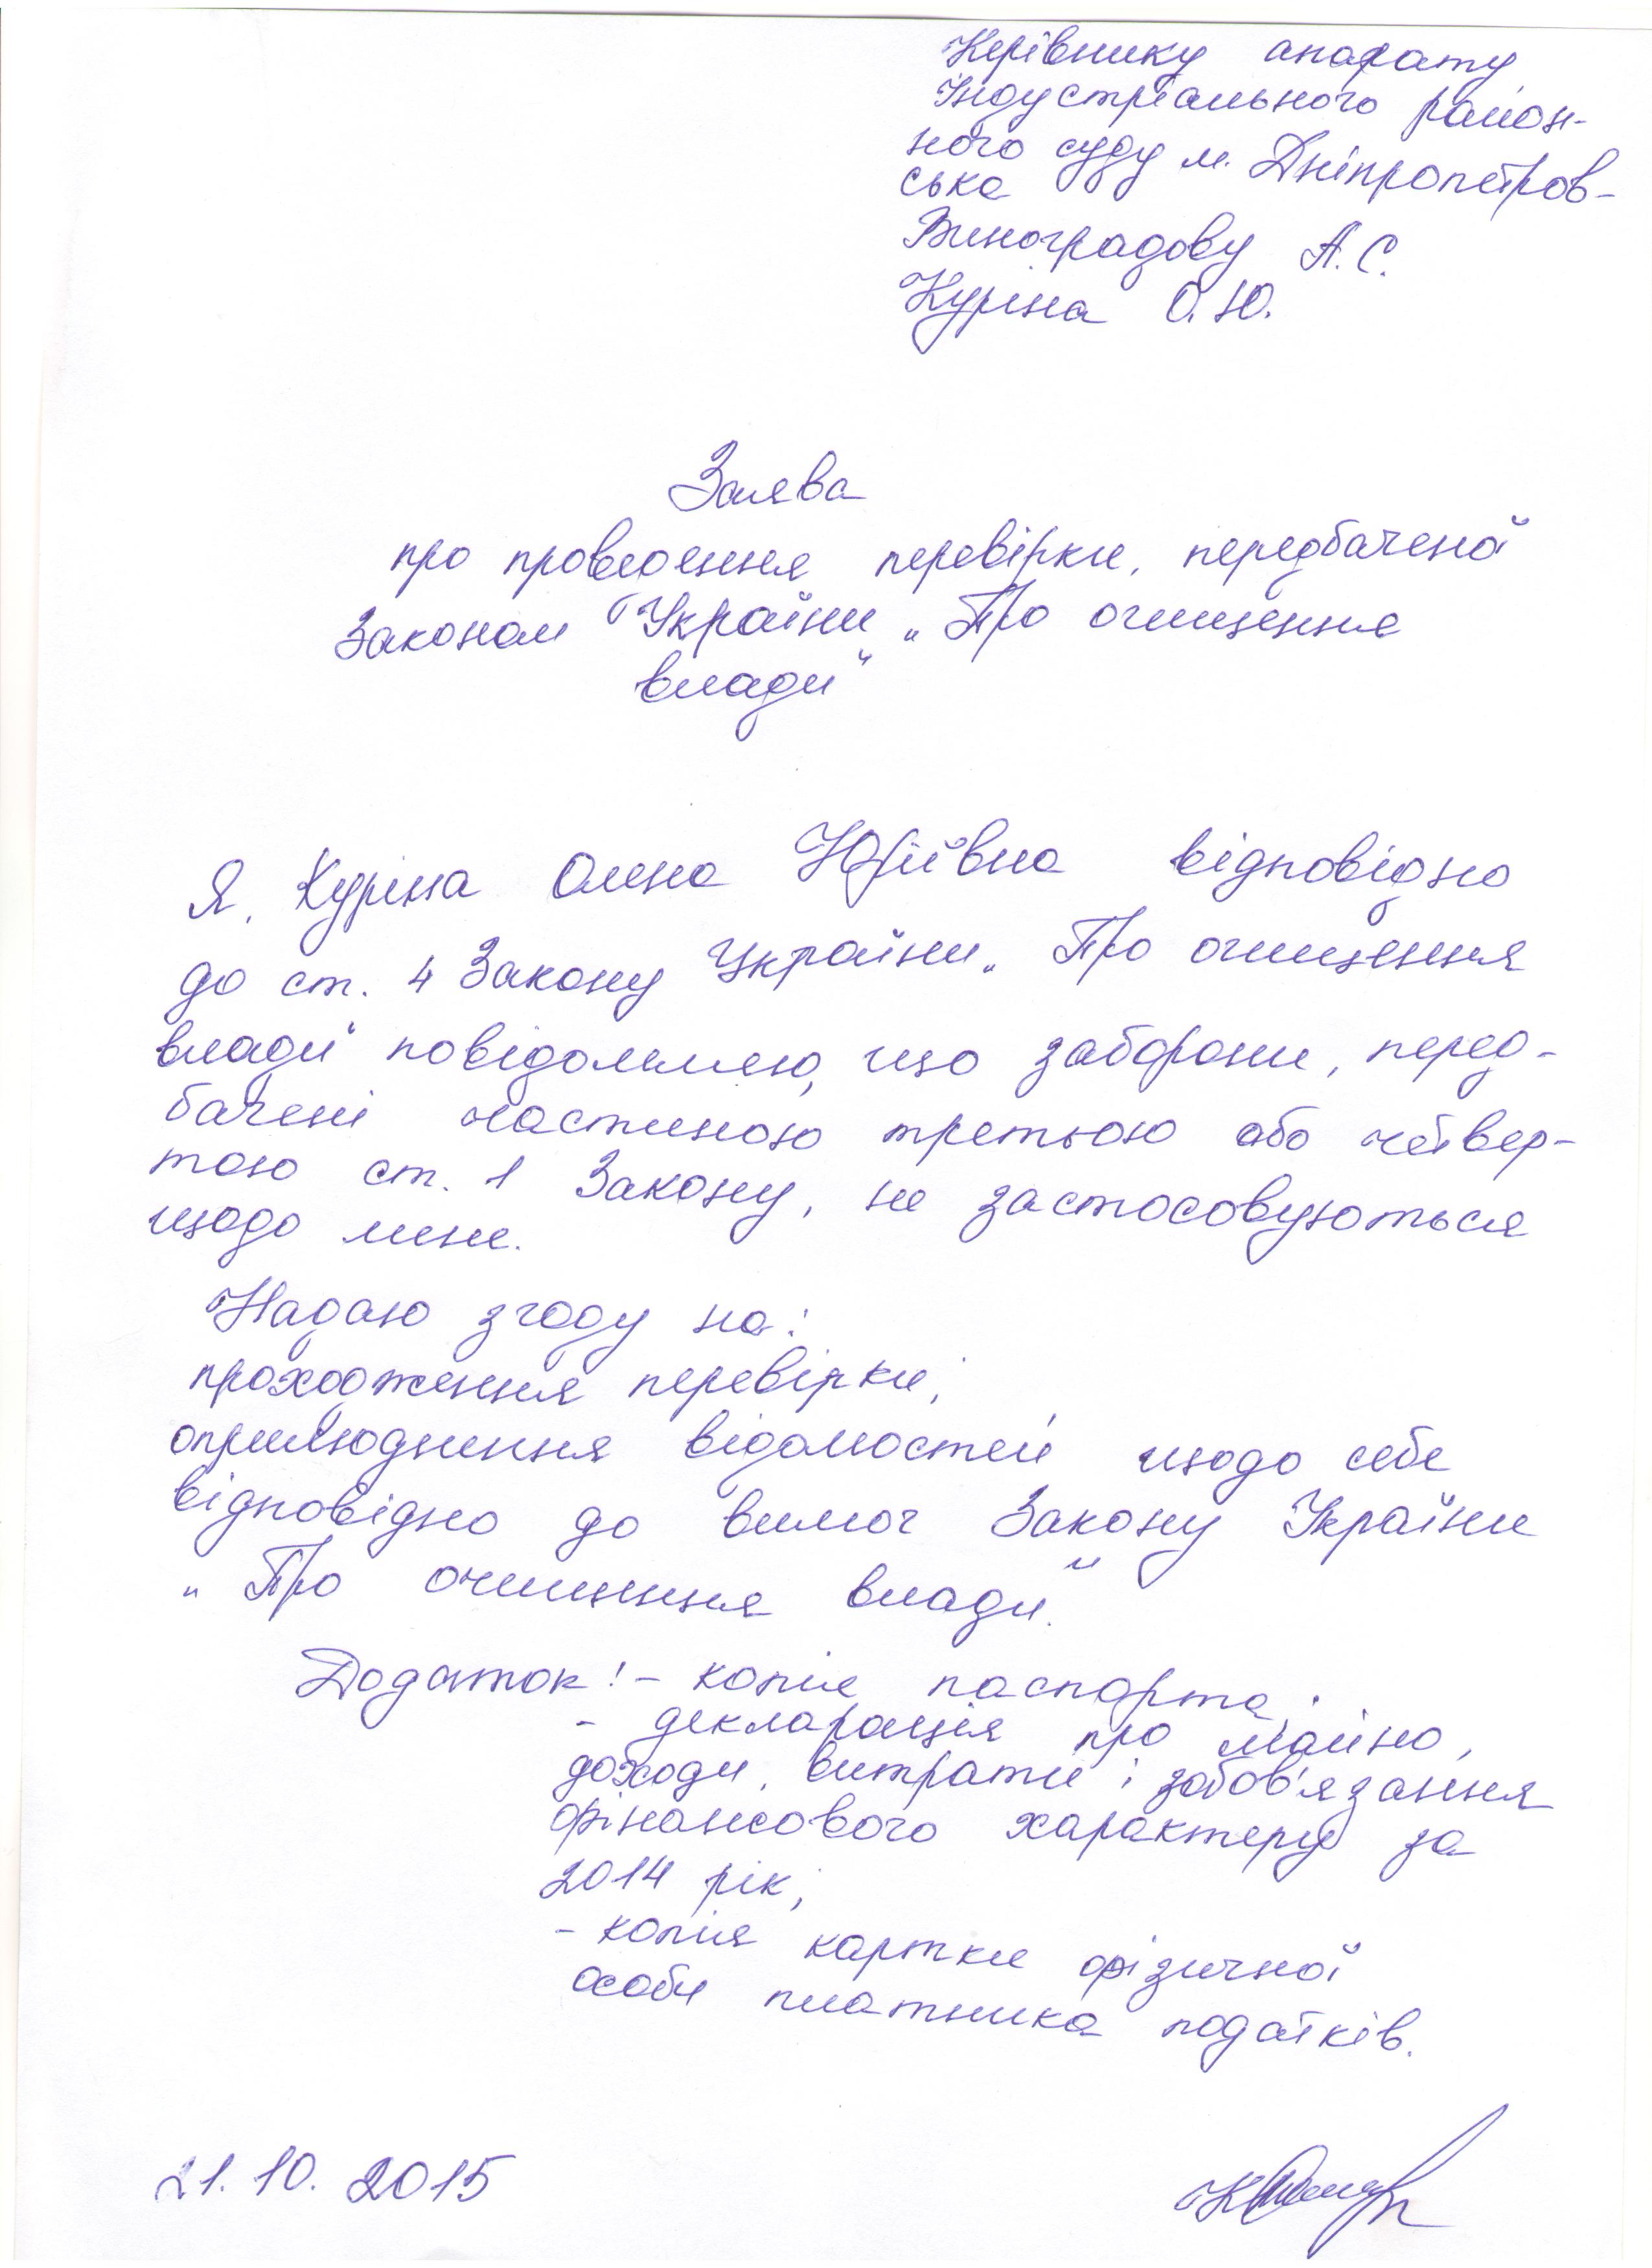 Керівнику апарату
Індустріального район-
ного суду м. Дніпропетров-
ська
Виноградову А. С.
Куріна О. Ю.
Заява
про проведення перевірки, передбаченої
Законом України „Про очищення
влади"
Я, Куріна Олена Юріївна відповідно
до ст. 4 Закону України „Про очищення
влади" повідомляю, що заборони, перед-
бачені частиною третьою або четвер-
тою ст. 1 Закону, не застосовуються
щодо мене.
Надаю згоду на:
проходження перевірки;
оприлюднення відомостей щодо себе
відповідно до вимог Закону України
„Про очищення влади".
Додаток: - копія паспорта;
- декларація про майно,
доходи, витрати і зобов'язання
фінансового характеру за
2014 рік;
- копія картки фізичної
особи платника податків.
21.10.2015